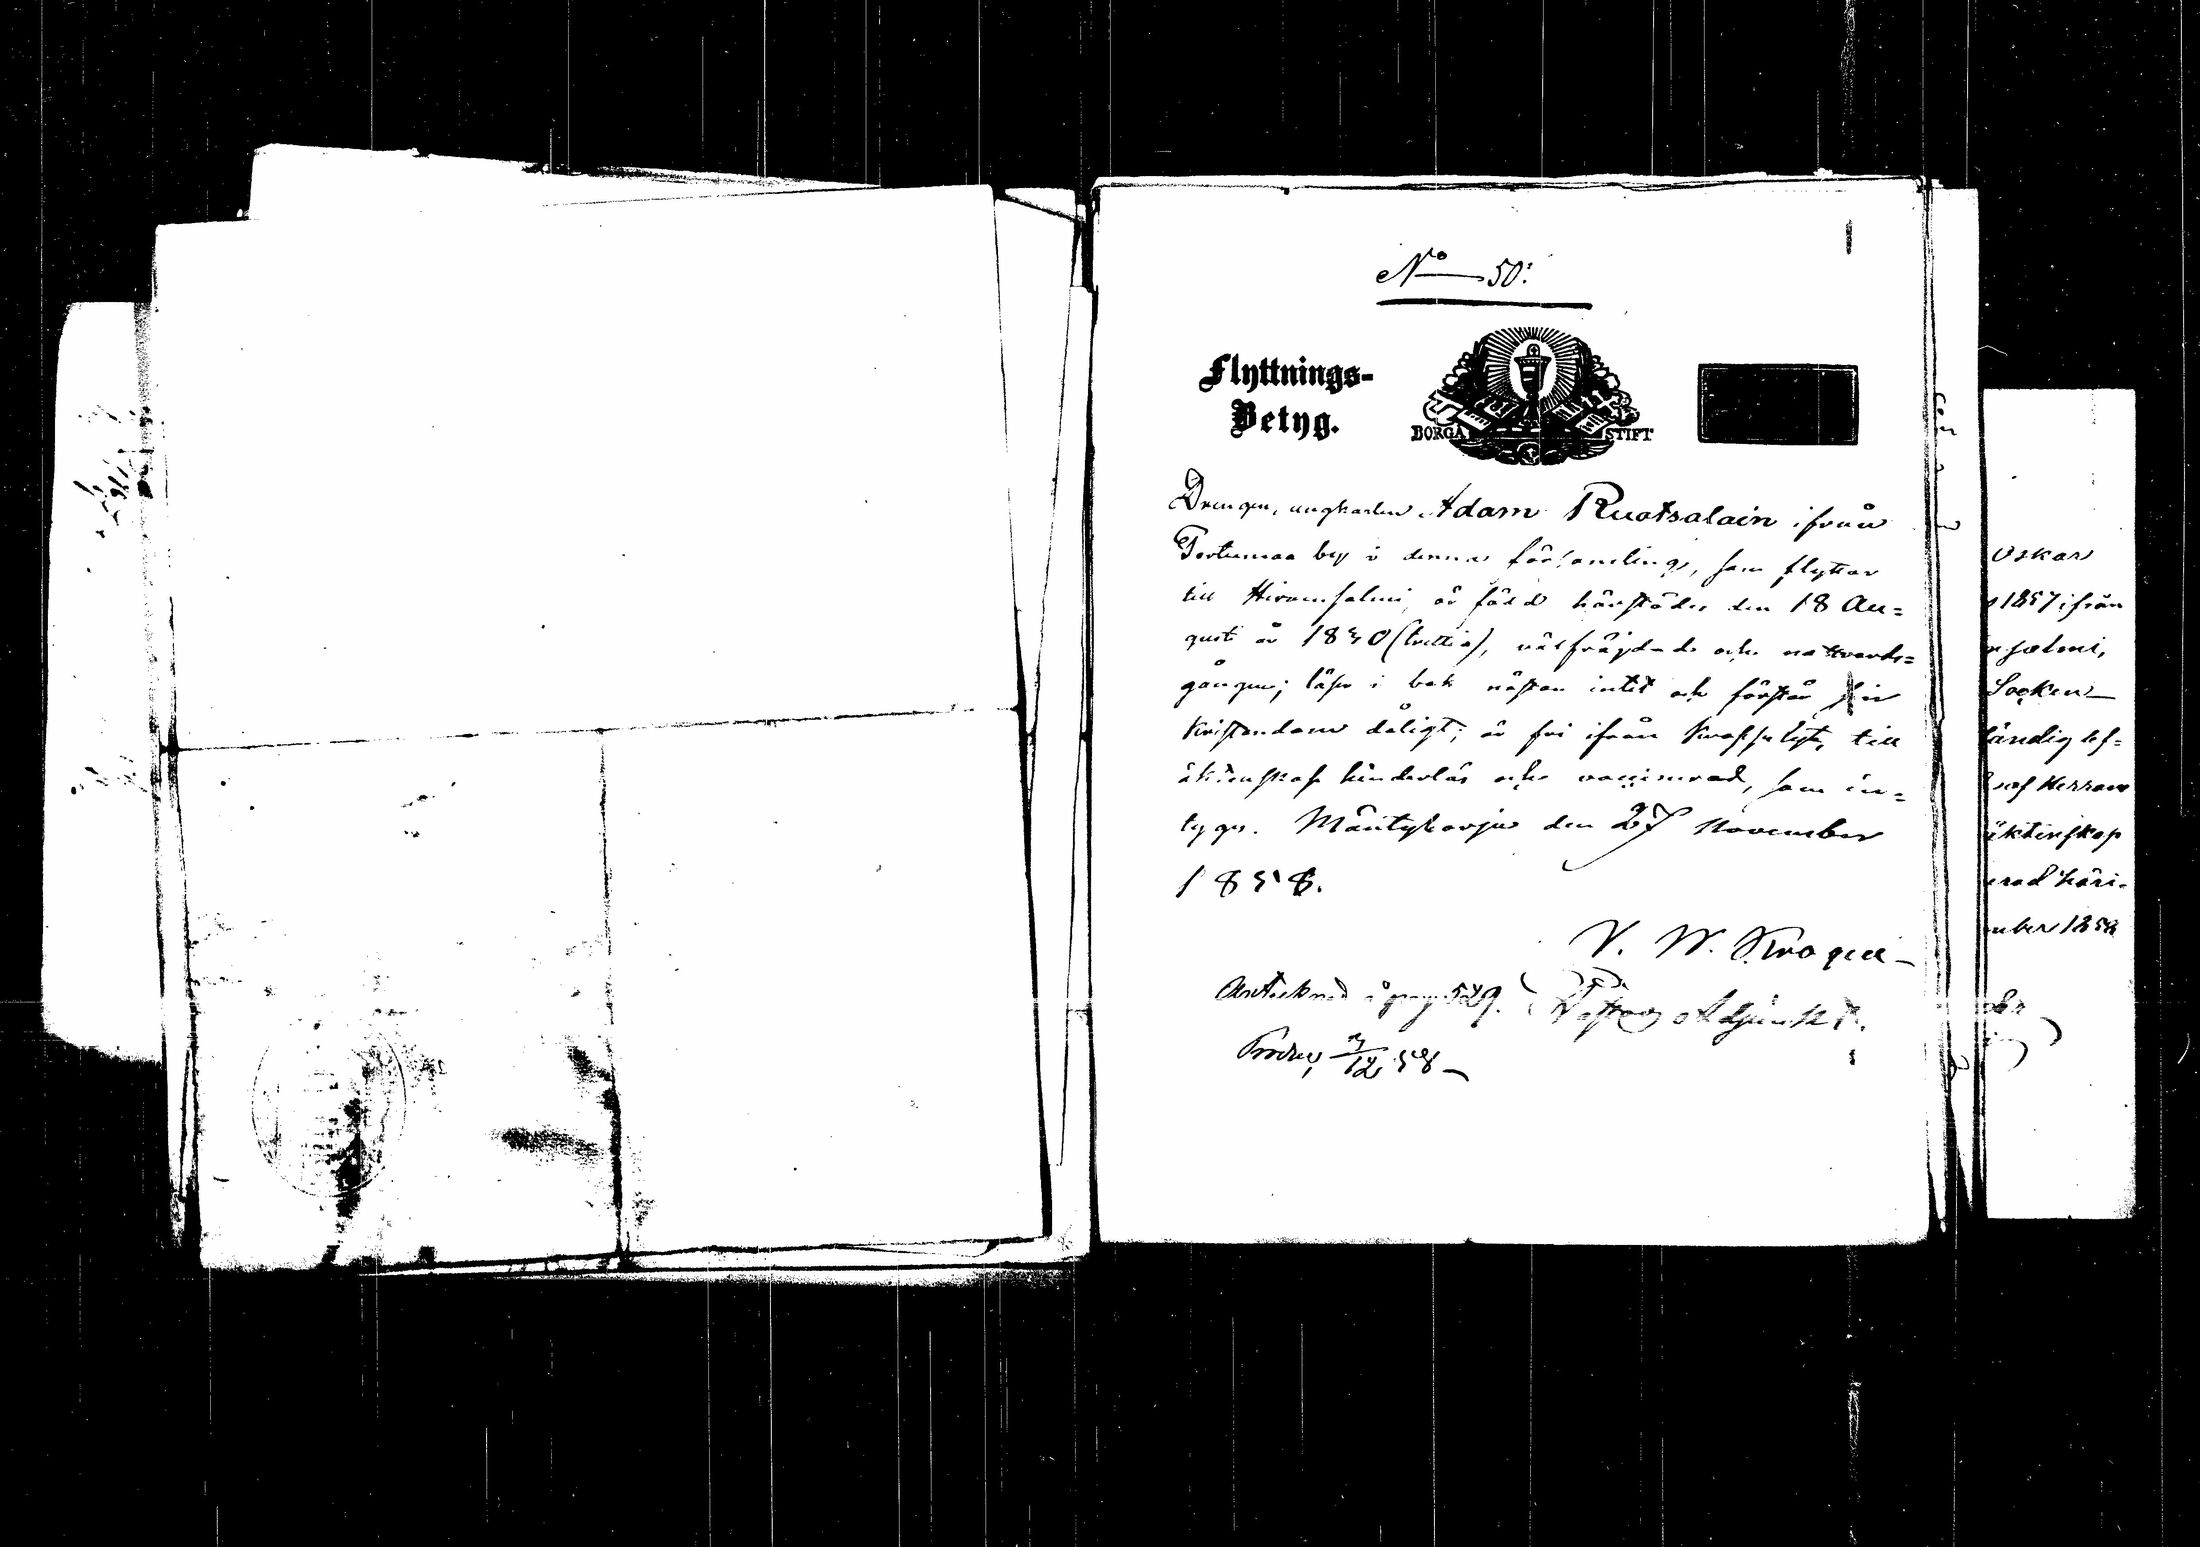 No 50:
Flyttnings-
Betyg.
BORGÅ STIFT
Drengen, ungkarlen Adam Ruotsalain ifrån
by i denna församling, som flyttar
till Hirvensalmi, är född härstädes den 18 Au=
gusti år 1830 (trettio), välfrejdad och nattvards=
gången; läser i bok nästan intet och förstår sin
kristendom dåligt; är fri ifrån till
äktenskap hinderlös och vaccinerad, som in=
tygar. Mäntyharju den 27 November
1858.
V. W.
Antecknad å pag. 529.
Pastors Adjunkt.
12 58
Oskar
1857 ifrån
salmi,
Socken
ständig
Herran
äktenskap
rad häri-
mber 1858